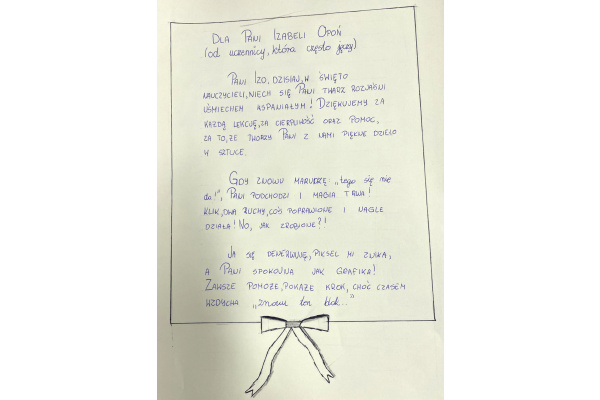 DLA PANI IZABELI OPOŃ
(od uczennicy, która często jęczy)
PANI IZO, DZISIAJ, W ŚWIĘTO
NAUCZYCIELI, NIECH SIĘ PANI TWARZ ROZJAŚNI
UŚMIECHEM WSPANIAŁYM! DZIĘKUJEMY ZA
KAŻDĄ LEKCJĘ, ZA CIERPLIWOŚĆ ORAZ POMOC,
ZA TO, ŻE TWORZY PANI Z NAMI PIĘKNE DZIEŁO
W SZTUCE.
GDY ZNOWU MARUDZĘ: „tego się nie
da!", PANI PODCHODZI I MAGIA TRWA!
KLIK, DWA RUCHY, COŚ POPRAWIONE I NAGLE
DZIAŁA! NO, JAK ZROBIONE?!
JA SIĘ DENERWUJĘ, PIKSEL MI ZNIKA,
A PANI SPOKOJNA JAK GRAFIKA!
ZAWSZE POMOŻE, POKAŻE KROK, CHOĆ CZASEM
WZDYCHA „znowu ten blok..."